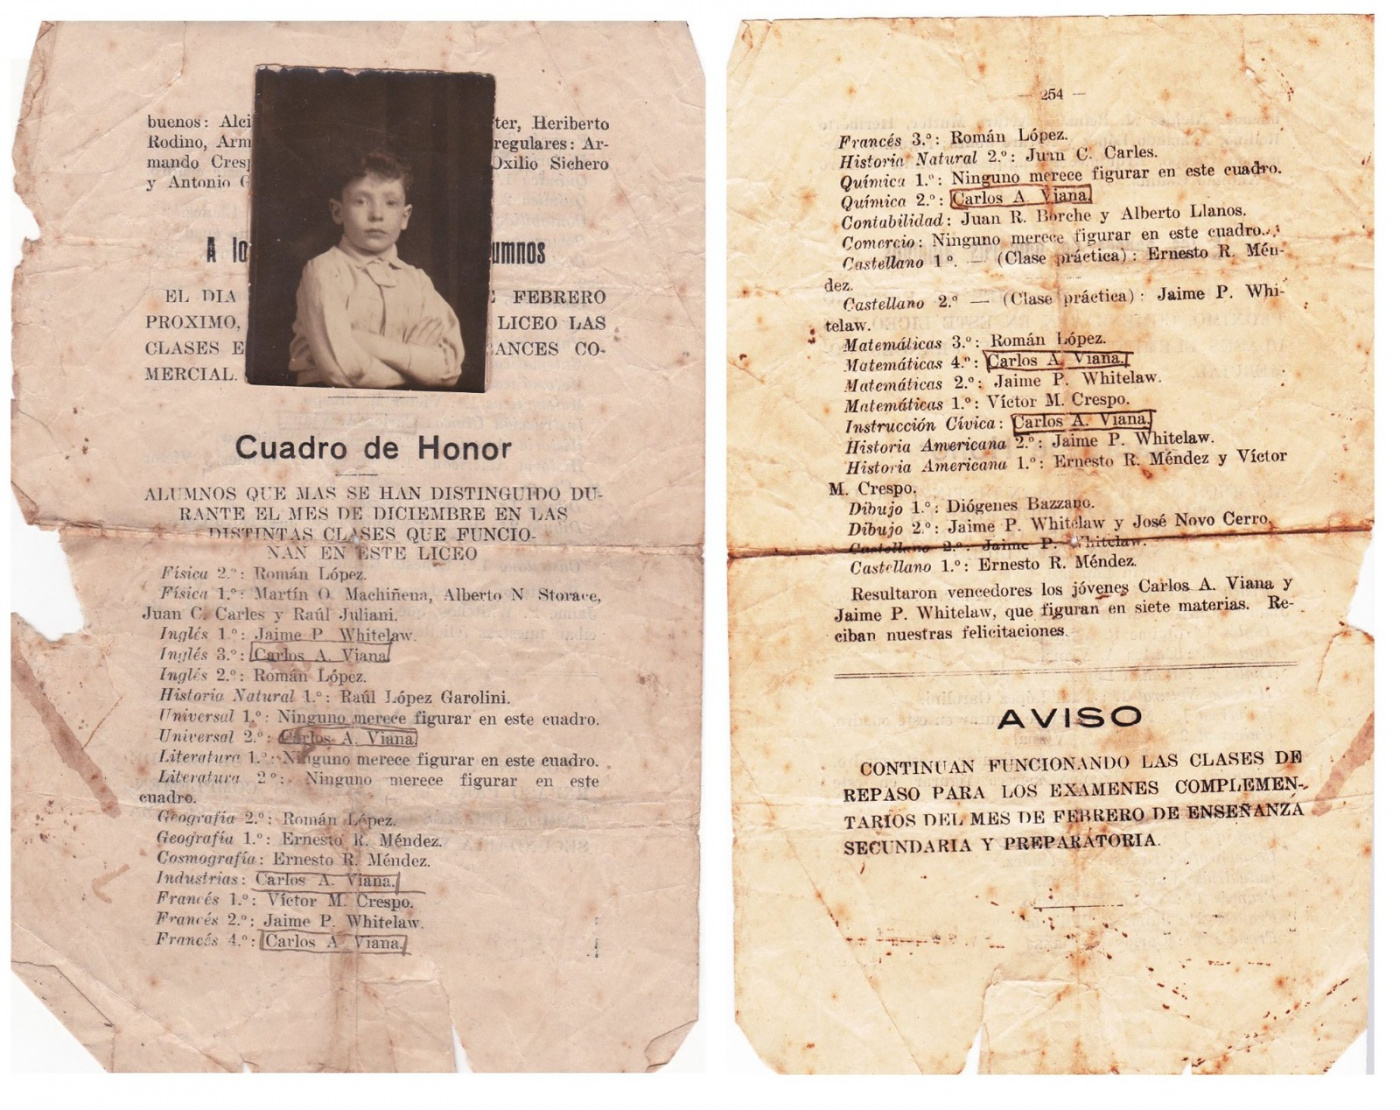 buenos: Alci ter, Heriberto
Rodino, Arm regulares: Ar-
mando Cresp Oxilio Sichero
y Antonio G
A lo umnos
EL DIA E FEBRERO
PROXIMO, LICEO LAS
CLASES E ANCES CO-
MERCIAL.
Cuadro de Honor
ALUMNOS QUE MAS SE HAN DISTINGUIDO DU-
RANTE EL MES DE DICIEMBRE EN LAS
DISTINTAS CLASES QUE FUNCIO-
NAN EN ESTE LICEO
Física 2.º: Román López.
Física 1.º: Martín O. Machiñena, Alberto N Storace,
Juan C. Carles y Raúl Juliani.
Inglés 1.º: Jaime P. Whitelaw.
Inglés 3.º: Carlos A. Viana
Inglés 2.º: Román López.
Historia Natural 1.º: Raúl López Garolini.
Universal 1.º: Ninguno merece figurar en este cuadro.
Universal 2.º: Carlos A. Viana
Literatura 1.º: Ninguno merece figurar en este cuadro.
Literatura 2º: Ninguno merece figurar en este
cuadro.
Geografía 2.º: Román López.
Geografía 1.º: Ernesto R. Méndez.
Cosmografía: Ernesto R. Méndez.
Industrias: Carlos A. Viana.
Francés 1.º: Víctor M. Crespo.
Francés 2.º: Jaime P. Whitelaw.
Francés 4.º: Carlos A. Viana.
— 254 —
Francés 3.º: Román López.
Historia Natural 2.º: Juan C. Carles.
Química 1.º: Ninguno merece figurar en este cuadro.
Química 2.º: Carlos A. Viana.
Contabilidad: Juan R. Borche y Alberto Llanos.
Comercio: Ninguno merece figurar en este cuadro.
Castellano 1º. — (Clase práctica): Ernesto R. Mén-
dez.
Castellano 2.º — (Clase práctica): Jaime P. Whi-
telaw.
Matemáticas 3.º: Román López.
Matemáticas 4.º: Carlos A. Viana.
Matemáticas 2.º: Jaime P. Whitelaw.
Matemáticas 1.º: Víctor M. Crespo.
Instrucción Cívica: Carlos A. Viana.
Historia Americana 2.º: Jaime P. Whitelaw.
Historia Americana 1.º: Ernesto R. Méndez y Víctor
M. Crespo.
Dibujo 1.º: Diógenes Bazzano.
Dibujo 2.º: Jaime P. Whitelaw y José Novo Cerro.
Castellano 2.º: Jaime P. Whitelaw.
Castellano 1.º: Ernesto R. Méndez.
Resultaron vencedores los jóvenes Carlos A. Viana y
Jaime P. Whitelaw, que figuran en siete materias. Re-
ciban nuestras felicitaciones.
AVISO
CONTINUAN FUNCIONANDO LAS CLASES DE
REPASO PARA LOS EXAMENES COMPLEMEN-
TARIOS DEL MES DE FEBRERO DE ENSEÑANZA
SECUNDARIA Y PREPARATORIA.